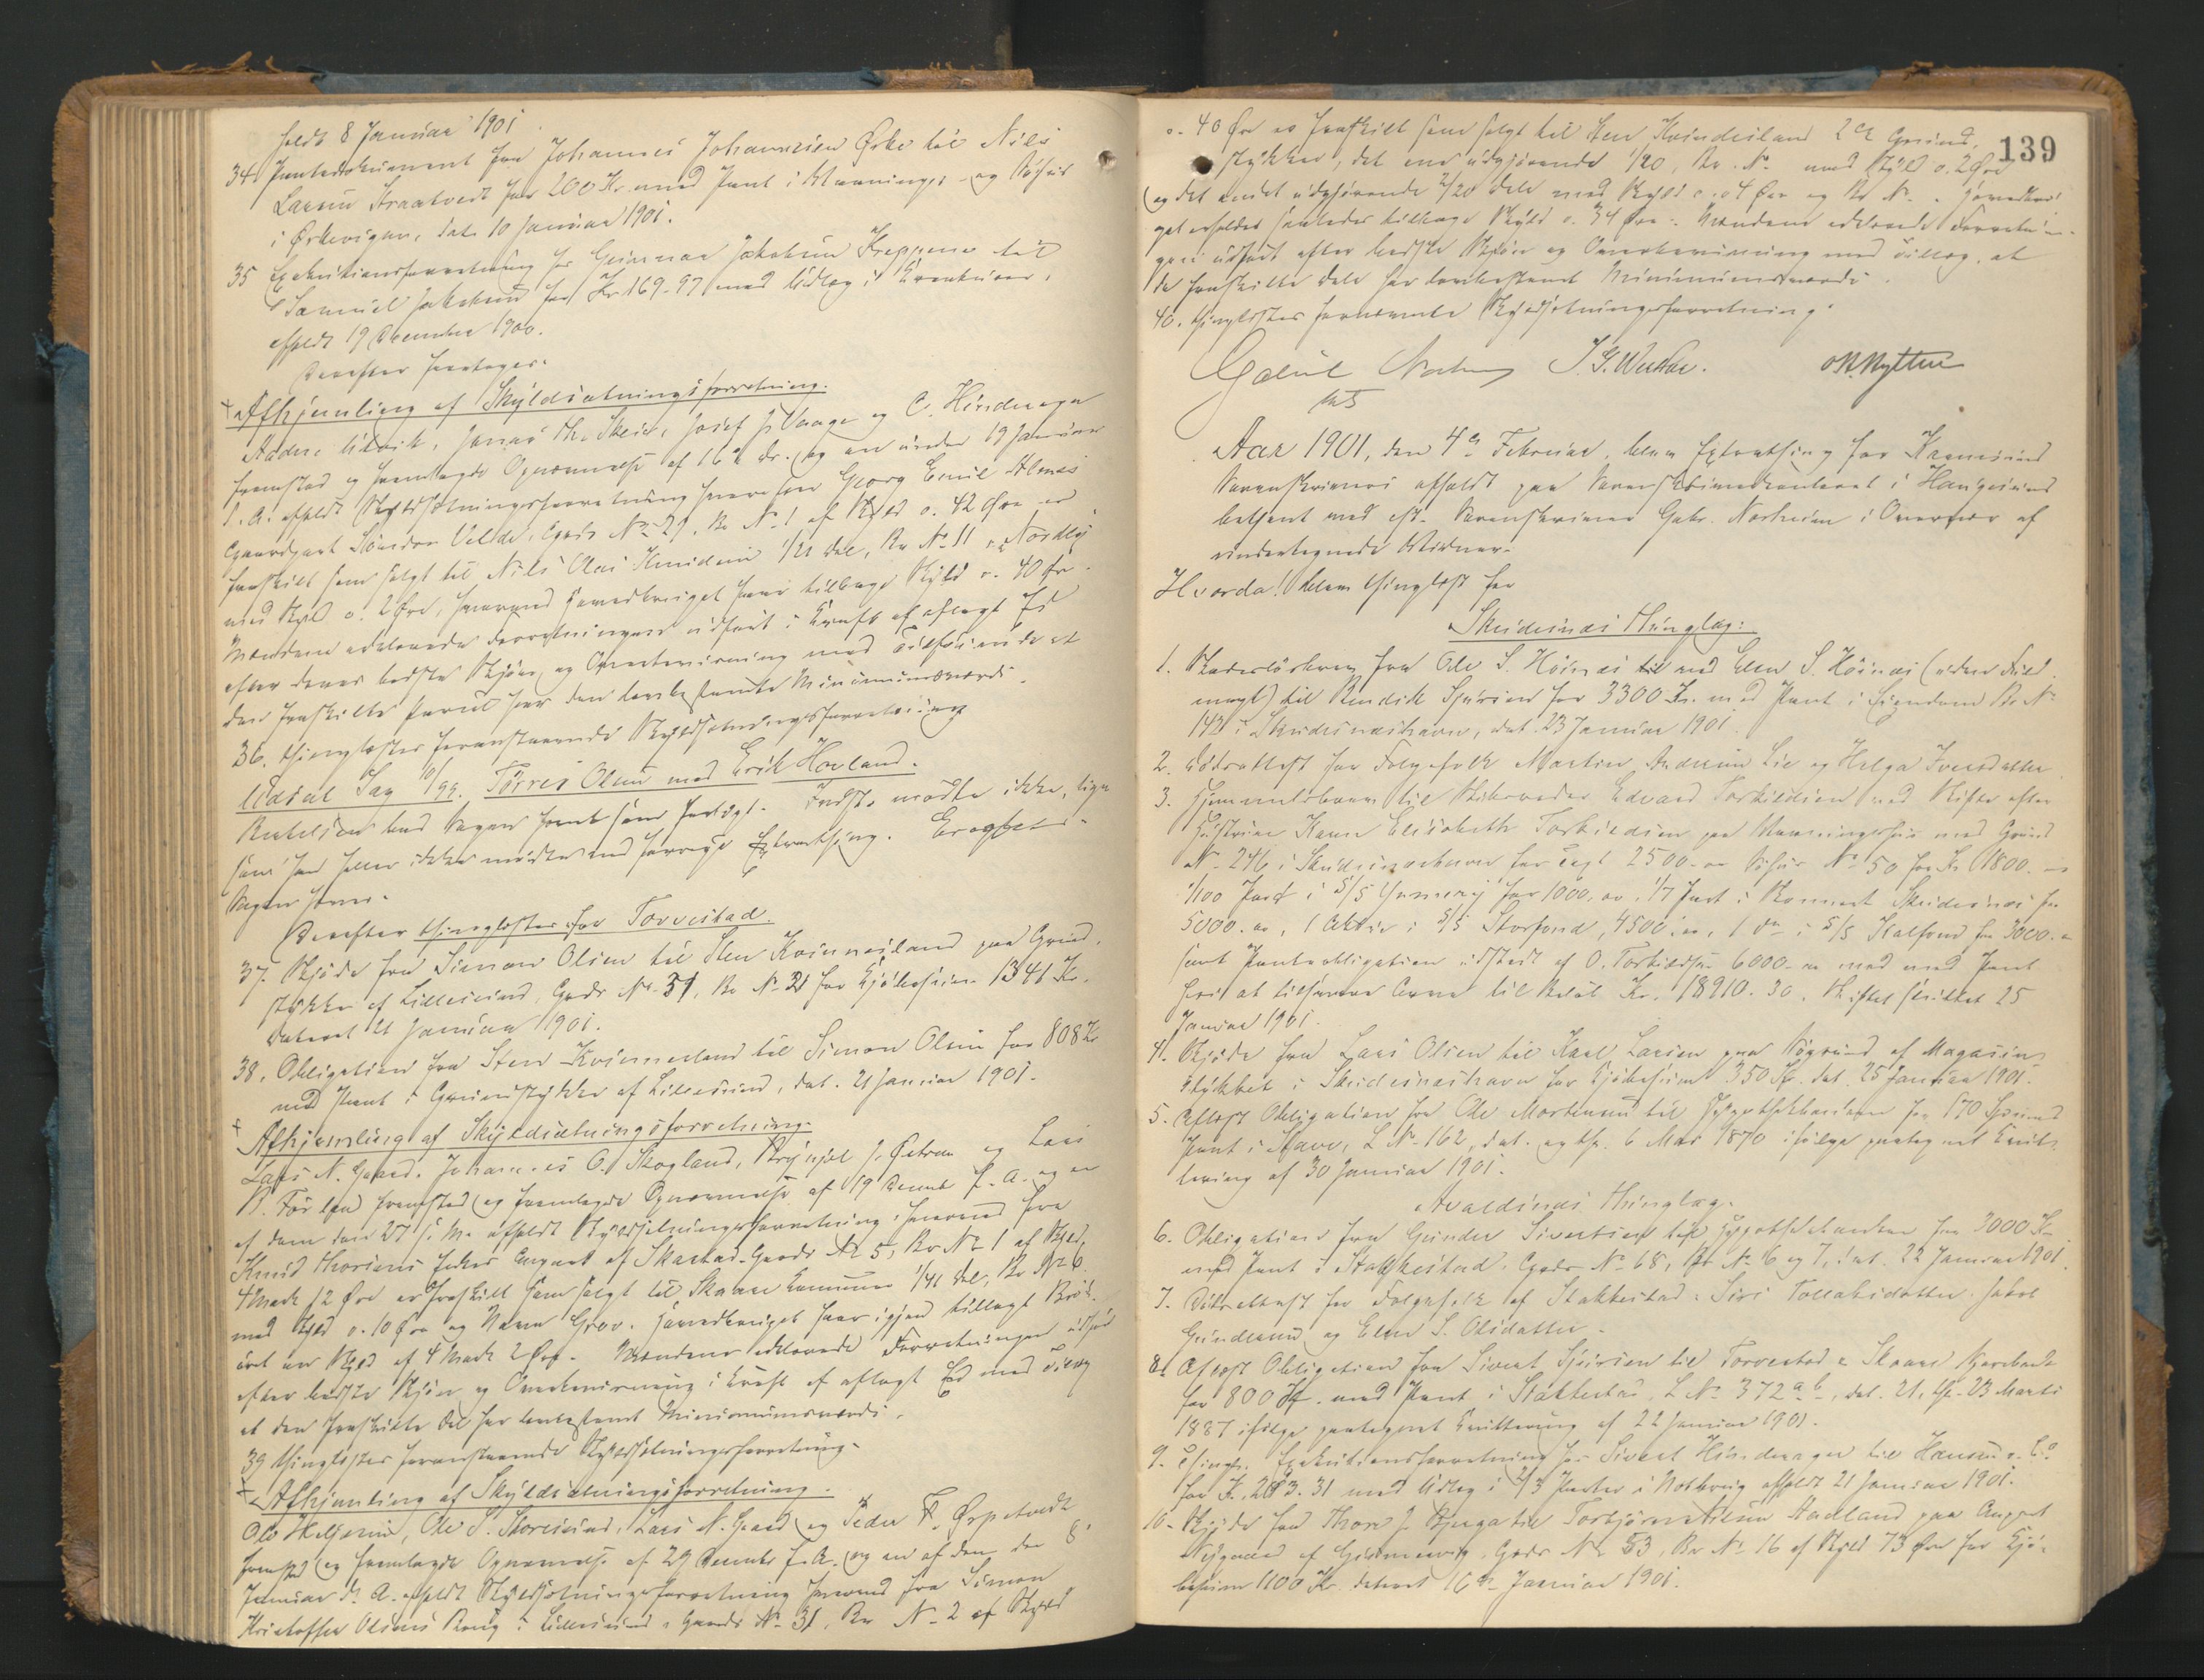 holdt 8 Januar 1901
34. Pantedokument fra Johannes Johannesen Ørke til Nils
Larsen Straatveit for 200 Kr. med Pant i Vaaningss- og Søhus
i Ørkevigen, dat. 10 Januar 1901.
35 Exekutionsforretning for Gunnar Jakobsen til
Samuel Jakobsen for Kr. 169.97 med Udlæg i
afholdt 19 December 1900.
Derefter foretoges:
Afhjemling af Skyldsætningsforretning.
Jonas Th. Skeie, Josef J. Vaage og C. Hinderager
fremstod og fremlagde Opnævnelse af 16 og en under 19 Januar
d. A. afholdt Skyldsætningsforretning hvorefter Georg Emil Almes
Gaardpart Søndre Velde, Gaards No 21, Br No 1 af Skyld o. 42 Øre er
fraskilt som solgt til Nils Olai Knudsen 1/21 Del, Br No 11 "Nordly"
med Skyld o. 2 Øre, hvorimod Hovedbruget har tilbage Skyld o. 40 Øre.
Mændene erklærede Forretningen udført i Kraft af aflagt Ed
efter deres bedste Skjøn og Overbevisning med Tilføiende at
den fraskilte Parcel har den lovbestemte Minimumsværdi.
36. Thinglæstes foranstaaende Skyldsætningsforretning
Udsat Sag 10/99. Tørres Olsen mod Erik Hovland.
Sagen
som han heller ikke mødte ved forrige Extrathing.
Sagen
Derefter thinglæstes for Torvestad.
37. Skjøde fra Simon Olsen til Sten Kvinnesland paa Grund-
stykke af Lillesund, Gards No 31, Br No 21 for Kjøbesum 1341 Kr.
dateret 21 Januar 1901.
38. Obligation fra Sten Kvinnesland til Simon Olsen for 808 Kr
med Pant i Grundstykke af Lillesund, dat. 21 Januar 1901.
Afhjemling af Skyldsætningsforretning.
Lars N. Gaard, Johannes O. Skogland, J. Østrem og Lars
fremstod og fremlagde Opnævnelse af 19 December f. A. og en
af dem den 27 f. M. afholdt Skyldsætningsforretning hvorved fra
Knud Thorsens Anpart af Skaarbø Gaards No 5, Br No 1 af Skyld
4 Mark 12 Øre er fraskilt som solgt til Skaare Kommune 1/41 Del, Br No 6
med Skyld o. 10 Øre og Navn Grov. Hovedbruget har igjen tillagt
en Skyld af 4 Mark 2 Øre. Mændene erklærede Forretningen udført
efter bedste Skjøn og Overbevisning i Kraft af aflagt Ed med Tillæg
at den fraskilte Del har lovbestemt Minimumsværdi.
39 Thinglæstes foranstaaende Skyldsætningsforretning.
Afhjemling af Skyldsætningsforretning.
Ole Ole S. Storesund, Lars N. Gaard og Peder F. Ørpetvedt
fremstod og fremlagde Opnævnelse af 29 December f. A. og en af dem den 8
Januar d. A. afholdt Skyldsætningsforretning hvorved fra Simon
Kristoffer Olsens Brug i Lillesund, Gaards No 31, Br No 2 af Skyld
139
o. 40 Øre er fraskilt som solgt til Sten Kvindesland 2de Grund-
stykker, det ene udgjørende 1/20, Br. No med Skyld o. 2 Øre
og det andet udgjørende 2/20 Dele med Skyld o. 04 Øre og Br No . Hovedbru-
get erholder saaledes tilbage Skyld o. 34 Øre. Mændene erklærede Forretnin-
gen udført efter bedste Skjøn og Overbevisning med Tillæg, at
de fraskilte Dele har lovbestemt Minimumsværdi.
40. Thinglæstes foranførte Skyldsætningsforretning.
Gabriel
Aar 1901, den 4de Februar, blev Extrathing for Karmsund
Sorenskriveri afholdt paa Sorenskriverkontoret i Haugesund
betjent med cst. Sorenskriver Gabr. Norheim i Overvær af
undertegnede Vidner.
Hvorda: blev thinglæst for
Skudesnæs Thinglag:
1. Skadesløsbrev fra Ole S. Høinæs til med Elen S. Høinæs (uden Fuld-
magt) til Bendik Sjursen for 3300 Kr. med Pant i Eiendom Br No
142 i Skudesnæshavn, dat. 23 Januar 1901.
2. Dødsattest for Folgefolk Martin Andreas Lie og Helga Iversdatter
3. Hjemmelsbrev til Edvard Torkildsen ved Skifte efter
Hustrue Karen Elisabeth Torkildsen paa Vaaningshus med Grund
No 246 i Skudesnæshavn for Taxt 2500.00 Søhus No 50 for Kr 1800.00
1/100 Part i S/S for 1000.00, 1/7 Part i Skudesnæs for
5000.00, 1 Aktie i S/S Storfond, 4500.00, 1 do i S/S Kalfond for 3000.00
samt Panteobligation udstedt af O. Torkildsen 6000.00 mod med Pant
heri at tilsvare til Beløb Kr. 18910.30. Skiftet sluttet 25
Januar 1901.
4. Skjøde fra Lars Olsen til Karl Larsen paa Søgrund af Magasin-
stykket i Skudesnæshavn for Kjøbesum 350 Kr. dat. 25 Januar 1901.
5. Aflyst Obligation fra Ole Mortensen til Hypothekbanken for 170 Spd med
Pant i L No 162, dat. og thl. 6 Mai 1870 ifølge paategnet Kvit-
tering af 30 Januar 1901.
Avaldsnæs Thinglag.
6. Obligation fra Gunder Sivertsen til Hypothekbanken for 3000 Kr
med Pant i Stakkestad, Gards No 68, Br No 6 og 7, dat. 22 Januar 1901.
7. Dødsattest for Folgefolk af Stakkestad: Siri Tollaksdatter, Jakob
Gundersen og Elen S. Olsdatter.
8. Aflyst Obligation fra Sivert Sjursen til Torvestad & Skaare Sparebank
for 800 Kr. med Pant i Stakkestad, L No 372ab, dat. 21, thl. 23 Marts
1887 ifølge paategnet Kvittering af 22 Januar 1901.
9. Exekutionsforretning for Sivert Hinderager til Hansen & Co
for Kr. 283.31 med Udlæg i 2/3 Parter i afholdt 21 Januar 1901.
10. Skjøde fra Thore J. til Torbjørn Nilsen Aadland paa Anpart
Nygaard af , Gards No 53, Br No 16 af Skyld 73 Øre for Kjø-
besum 1100 Kr. dateret 16de Januar 1901.